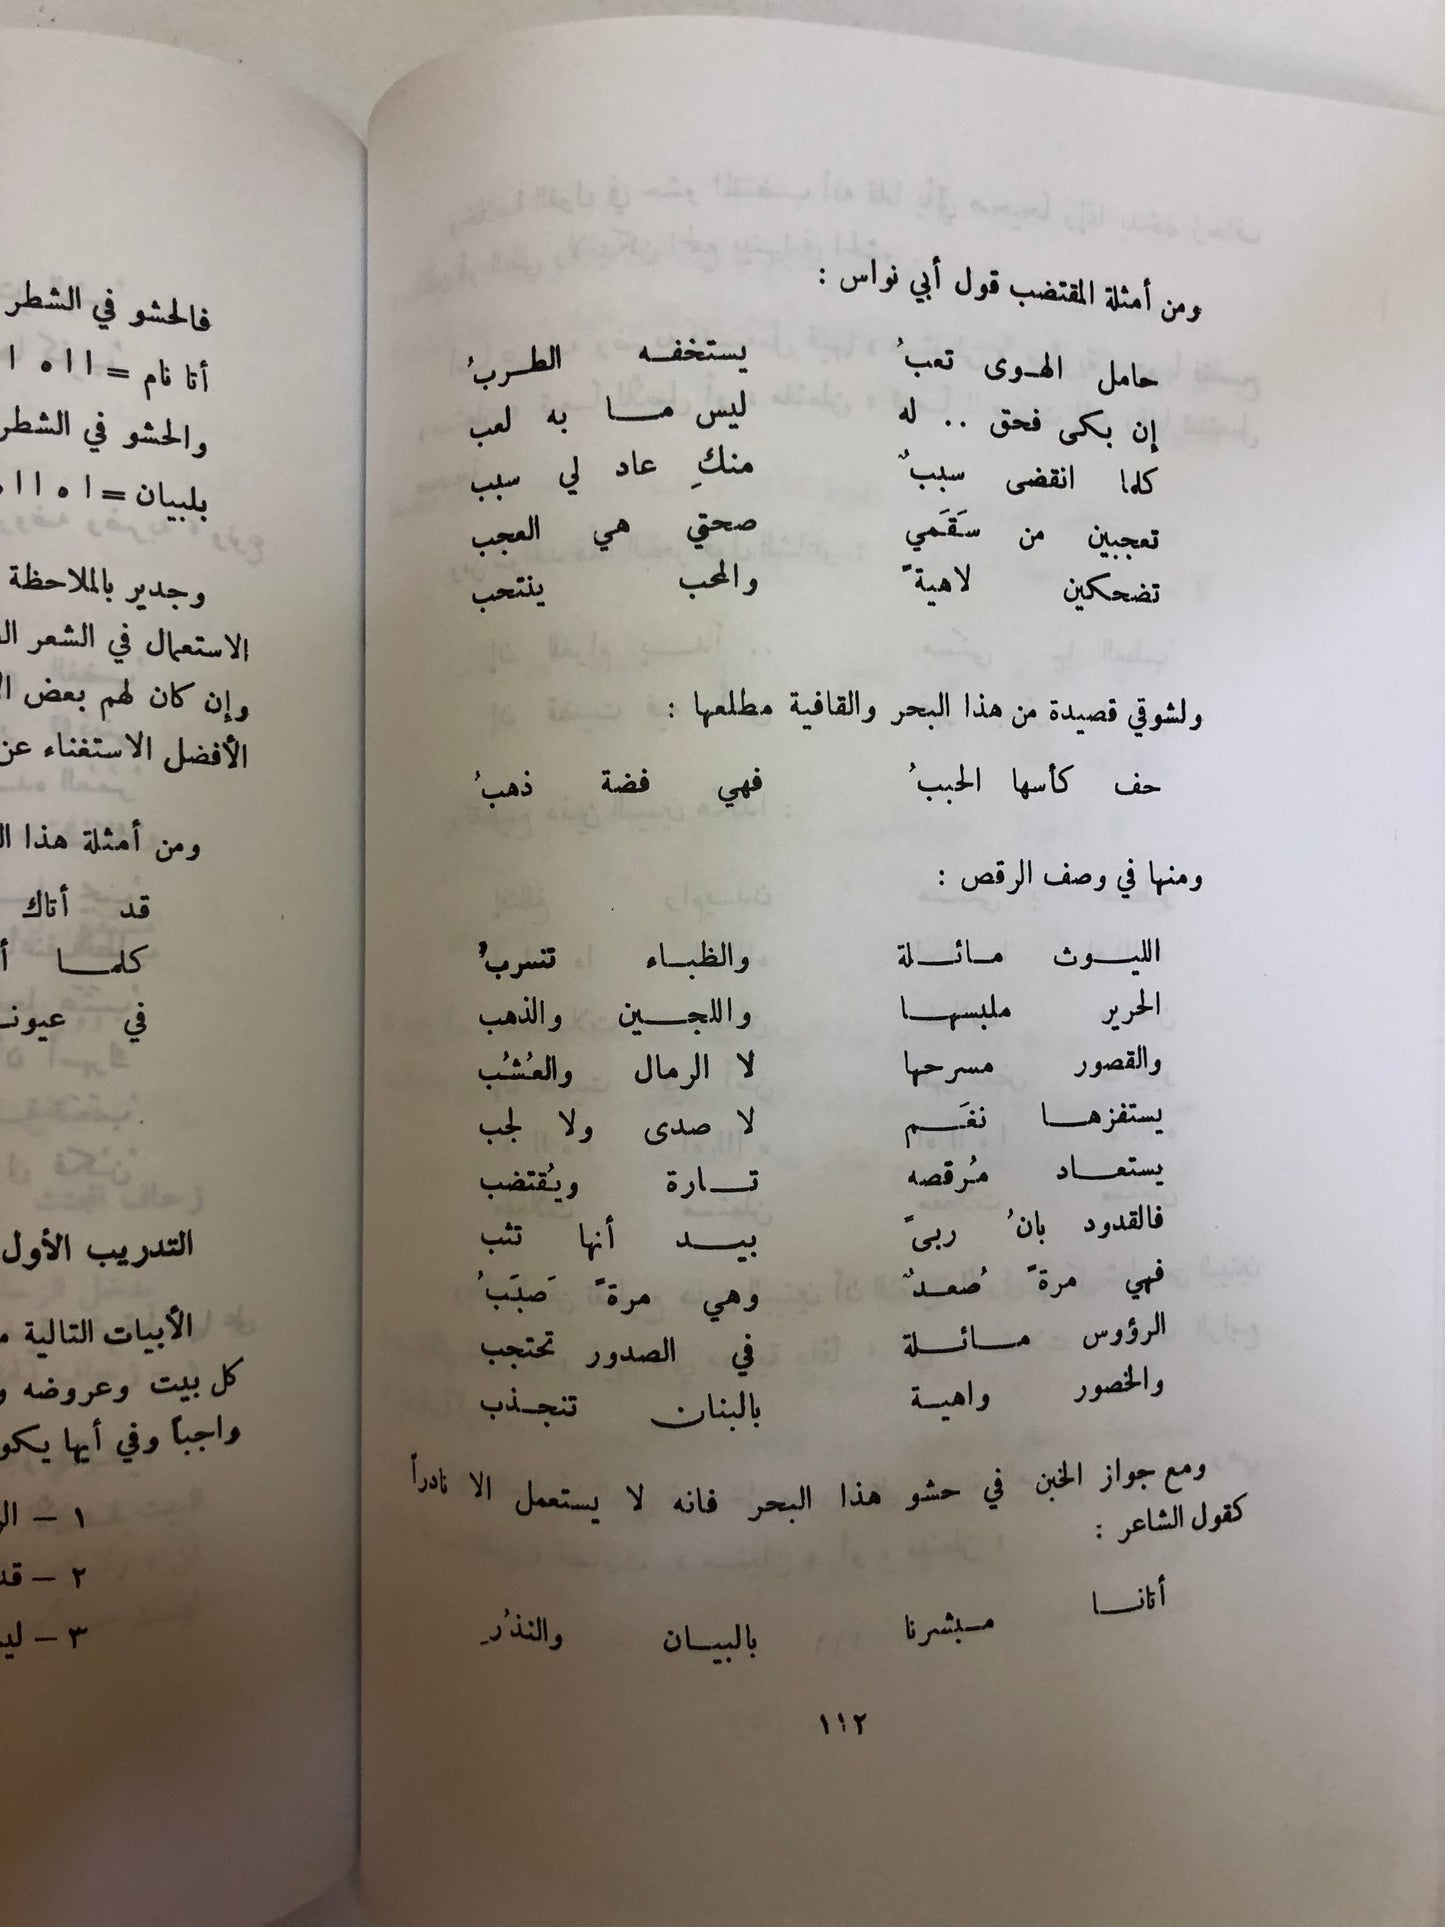 ومن أمثلة المقتضب قول أبي نواس :
حامل الهوى تعبُ يستخفه الطربُ
إن بكى فحق .. له ليس ما به لعب
كلما انقضى سببٌ منكِ عاد لي سبب
تعجبين من سَقَمي صحتي هي العجب
تضحكين لاهيةً والمحب ينتحب
ولشوقي قصيدة من هذا البحر والقافية مطلعها :
حف كأسها الحببُ فهي فضة ذهبُ
ومنها في وصف الرقص :
الليوث مائلة والظباء تنسربُ
الحرير ملبسها واللجين والذهب
والقصور مسرحها لا الرمال والعُشُب
يستفزها نغَم لا صدى ولا لجب
يستعاد مُرقصه تارة ويُقتضب
فالقدود بانُ ربىً بيد أنها تثب
فهي مرةً صُعدٌ وهي مرةً صَبَبُ
الرؤوس مائلة في الصدور تحتجب
والخصور واهية بالبنان تنجذب
ومع جواز الخبن في حشو هذا البحر فانه لا يستعمل الا نادراً
كقول الشاعر :
أتانا مبشرنا بالبيان والنذُرِ
١١٢
فالحشو في الشطر
أتا نام = ١١ ٥ ١
والحشو في الشطر
بلبيان = ١ ٥ ١١
وجدير بالملاحظة
الاستعمال في الشعر
وإن كان لهم بعض
الأفضل الاستغناء عن
ومن أمثلة هذا
قد أتاك
كلما
في
التدريب الأول
الأبيات التالية
كل بيت وعروضه
واجباً وفي أيها
١ –
٢ –
٣ –